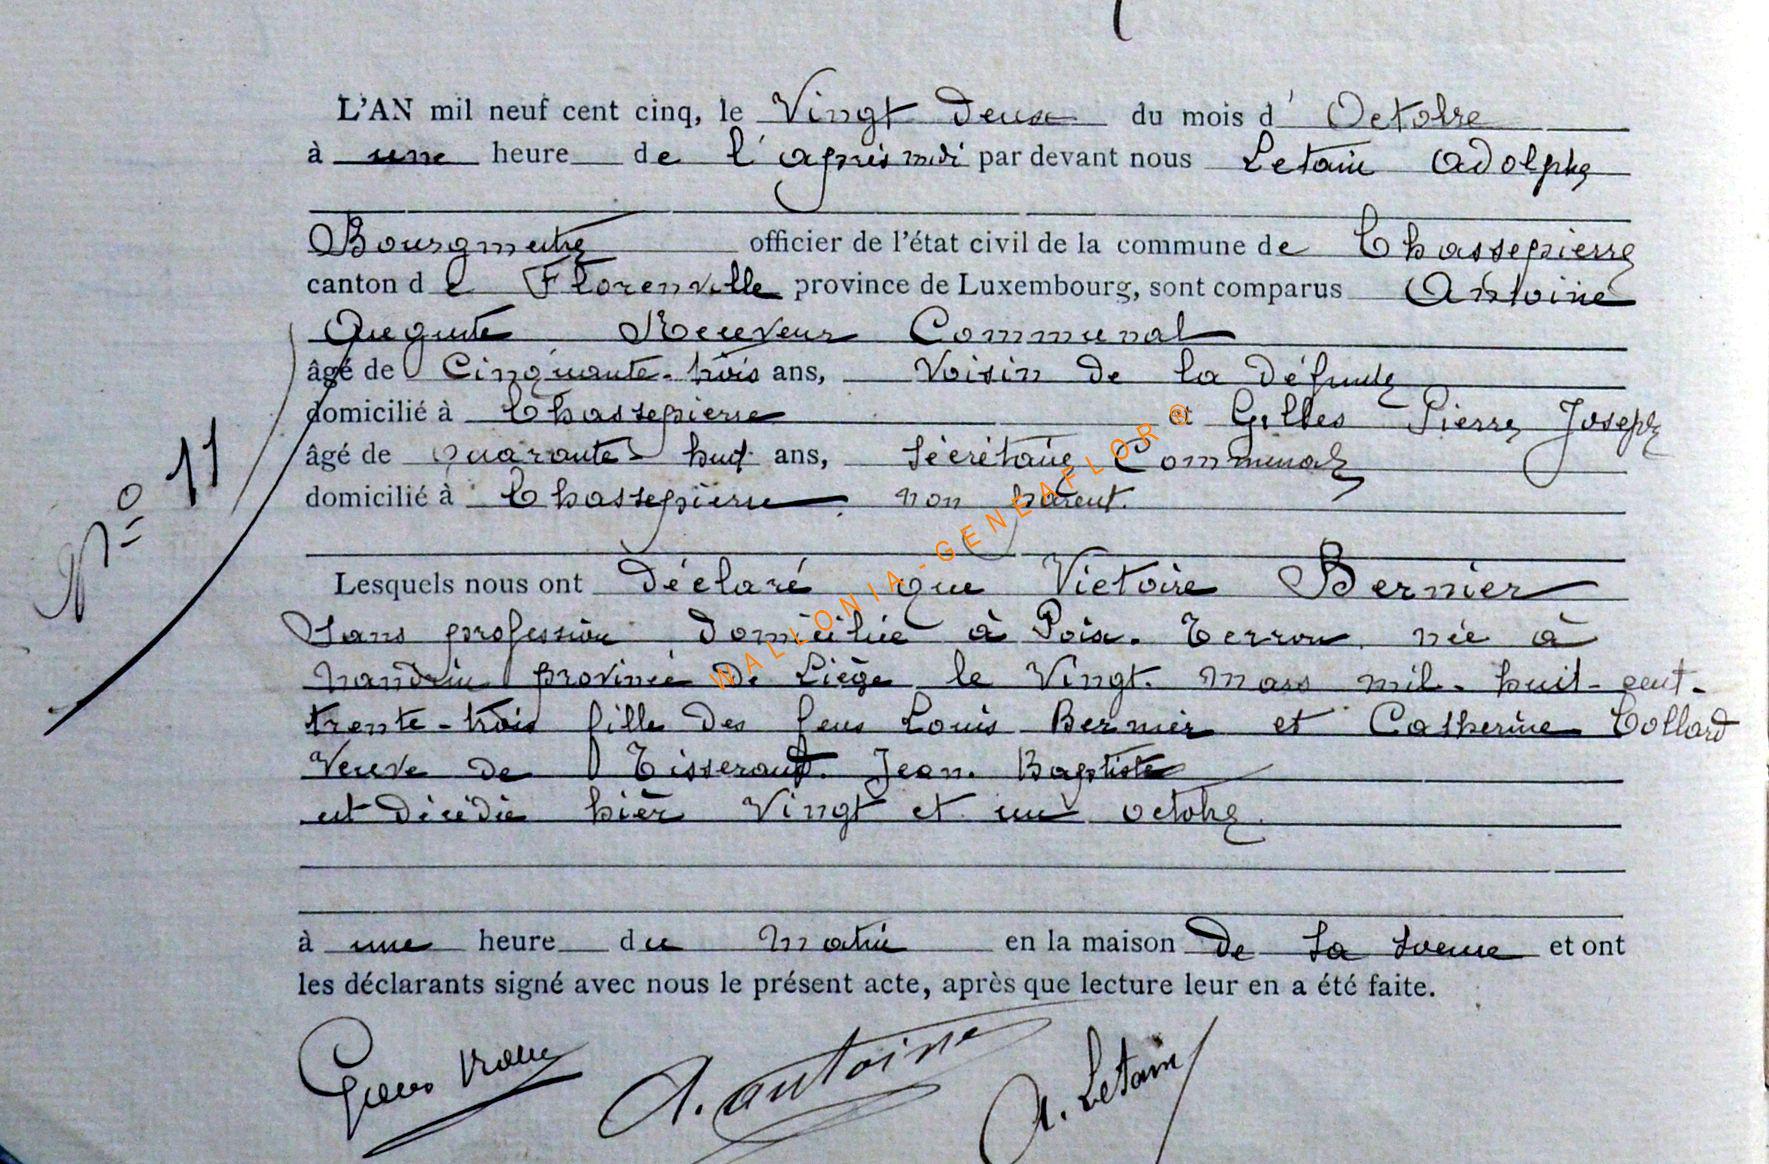 L'AN mil neuf cent cinq, le Vingt deux du mois d' Octobre
à une heure de l'après midi par devant nous Letain Adolphe
Bourgmestre officier de l'état civil de la commune de Chassepierre
canton de Florenville province de Luxembourg, sont comparus Antoine
Auguste Receveur Communal
âgé de Cinquante-trois ans, Voisin de la défunte
domicilié à Chassepierre et Gilles Pierre Joseph
âgé de quarante-huit ans, Sécrétaire Communal
domicilié à Chassepierre non parent.
Nº 11
Lesquels nous ont déclaré que Victoire Bernier
Sans profession domiciliée à Poix-Terron née à
Nandrin province de Liège le Vingt Mars mil-huit-cent-
trente-trois fille des feus Louis Bernier et Catherine Collard
Veuve de Tisserant Jean Baptiste
est décédée hier Vingt et un octobre
à une heure du matin en la maison de sa et ont
les déclarants signé avec nous le présent acte, après que lecture leur en a été faite.
A. Antoine A. Letain
WALLONIA-GENEAFLOR ®